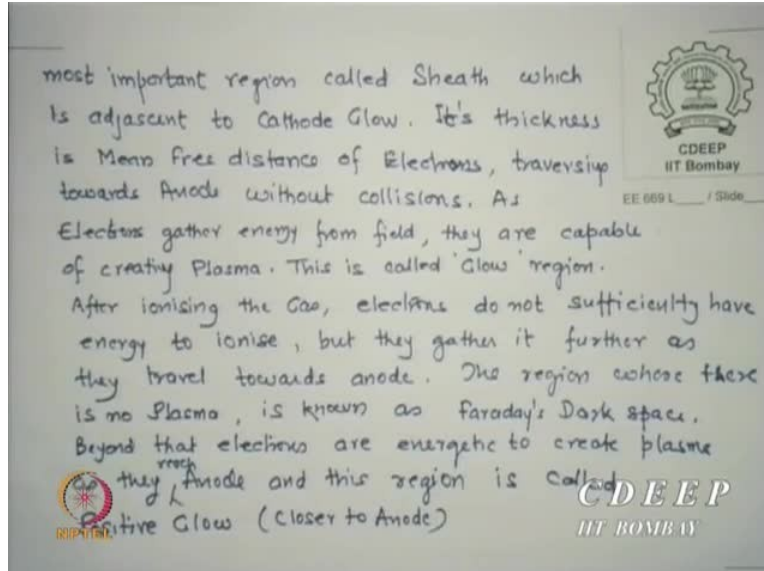 most important region called Sheath which
Is adjascent to Cathode Glow. It's thickness
is Mean Free distance of Electrons, traversing
towards Anode without collisions. As
Electrons gather energy from field, they are capable
of creating Plasma. This is called 'Glow' region.
After ionising the Gas, electrons do not sufficiently have
energy to ionise, but they gather it further as
they travel towards anode. The region where there
is no Plasma, is known as Faraday's Dark space.
Beyond that electrons are energetic to create plasma
as they reach Anode and this region is called
Positive Glow (Closer to Anode)
CDEEP
IIT Bombay
EE 669 L____ / Slide____
NPTEL
CDEEP
IIT BOMBAY